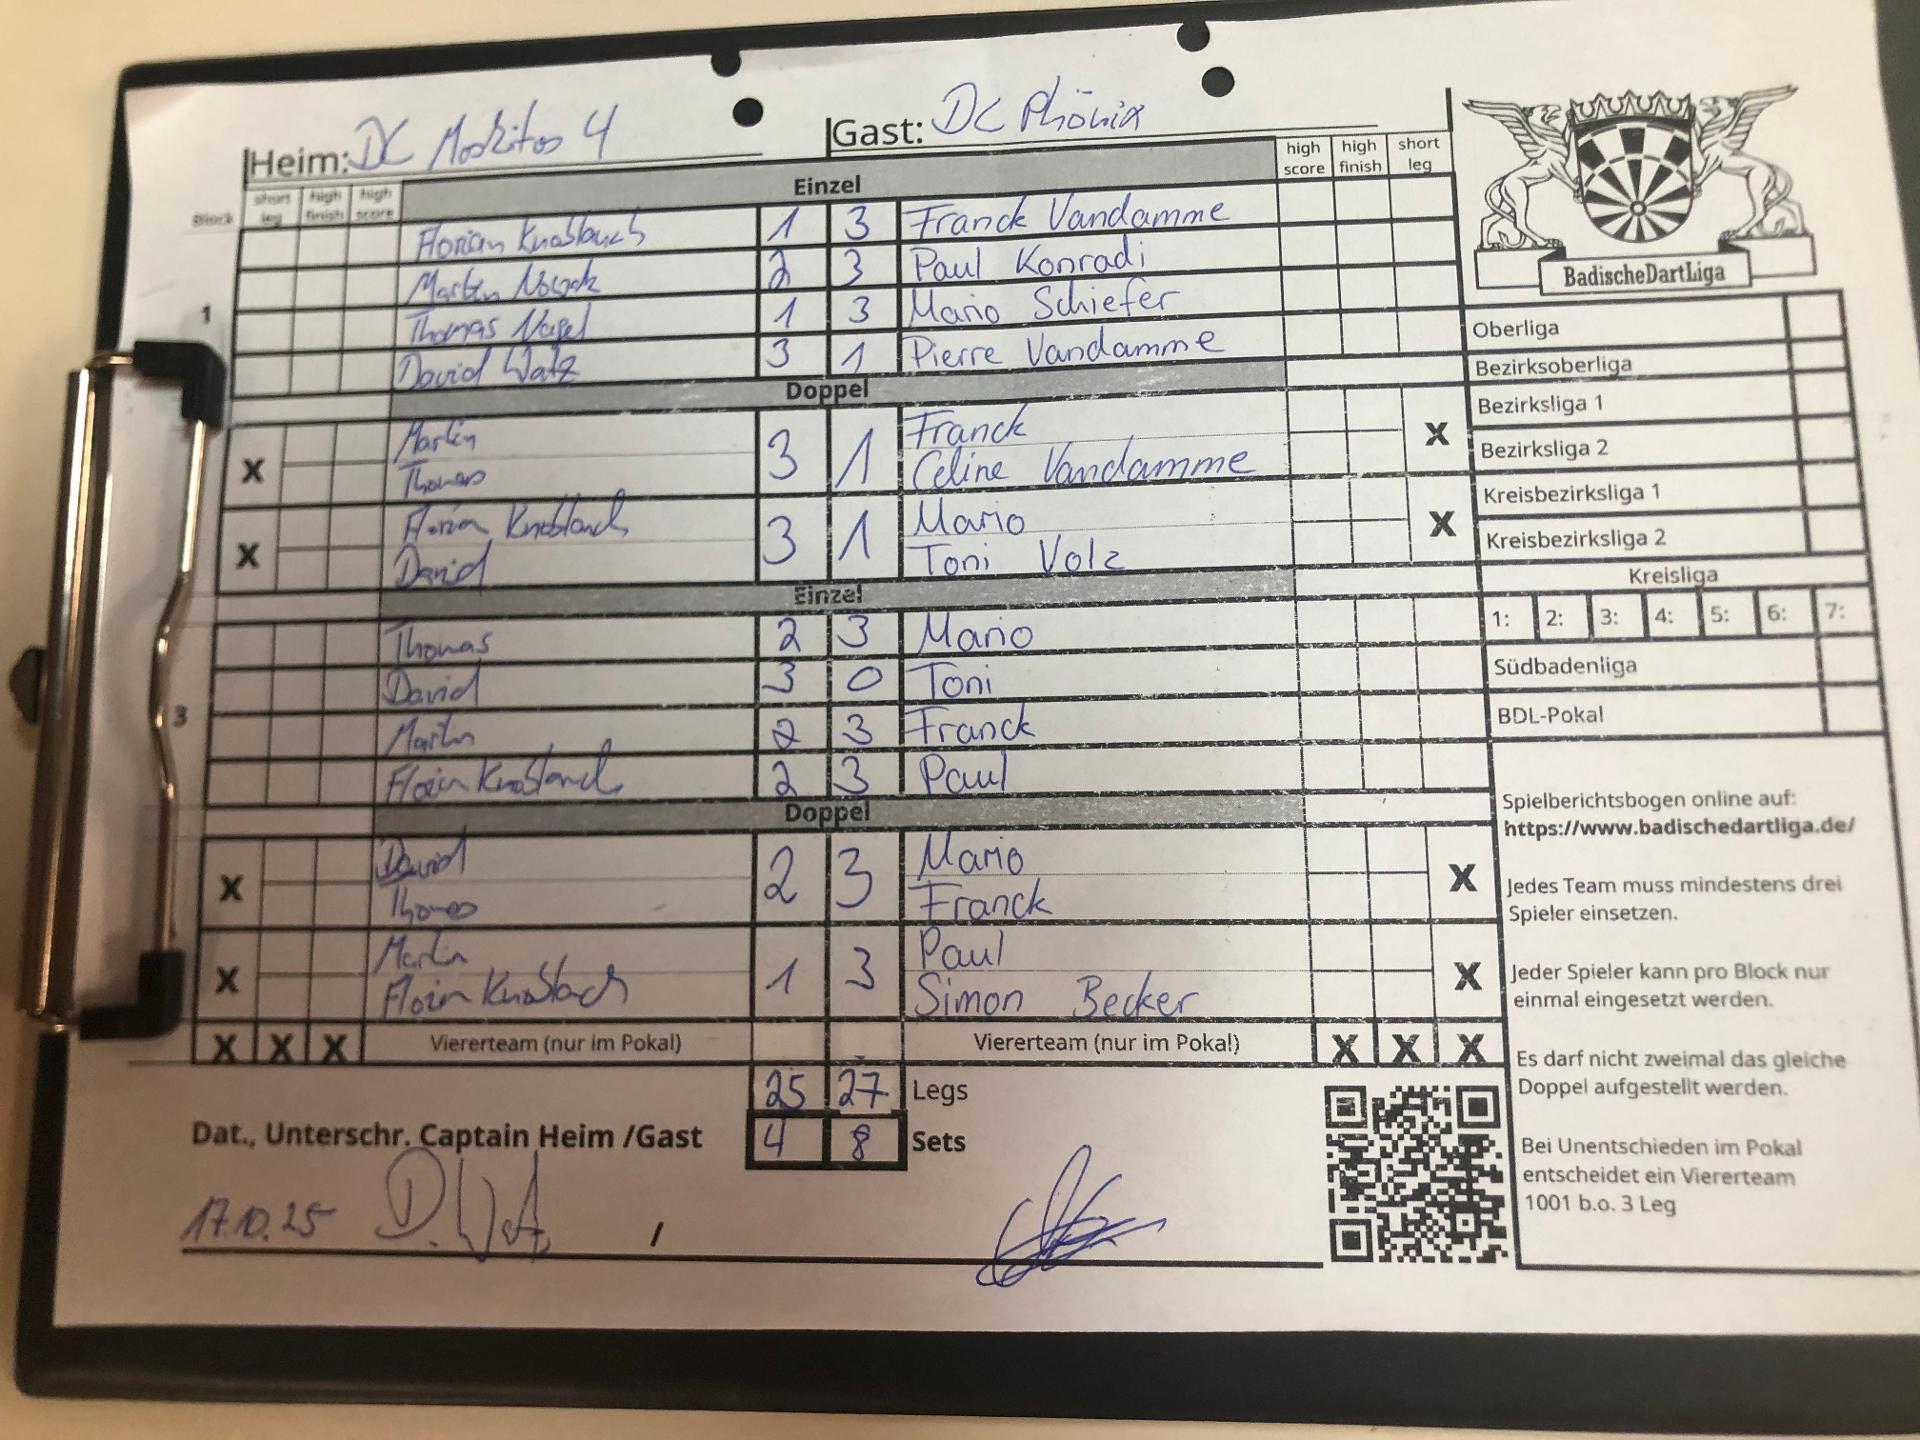 Heim: DC Moskitos 4 Gast: DC Phönix
Block short leg high finish high score Einzel high score high finish short leg
Florian Knoblauch 1 3 Franck Vandamme
Martin Nowak 2 3 Paul Konradi
1 Thomas Nagel 1 3 Mario Schiefer
David Watz 3 1 Pierre Vandamme
Doppel
Martin 3 1 Franck
X Thomas Celine Vandamme X
Florian Knoblauch 3 1 Mario
X David Toni Volz X
Einzel
Thomas 2 3 Mario
David 3 0 Toni
3 Martin 2 3 Franck
Florian Knoblauch 2 3 Paul
Doppel
David 2 3 Mario
X Thomas Franck X
Martin 1 3 Paul
X Florian Knoblauch Simon Becker X
X X X Viererteam (nur im Pokal) Viererteam (nur im Pokal) X X X
25 27 Legs
Dat., Unterschr. Captain Heim /Gast 4 8 Sets
17.10.25 D. Watz /
BadischeDartLiga
Oberliga
Bezirksoberliga
Bezirksliga 1
Bezirksliga 2
Kreisbezirksliga 1
Kreisbezirksliga 2
Kreisliga
1: 2: 3: 4: 5: 6: 7:
Südbadenliga
BDL-Pokal
Spielberichtsbogen online auf:
https://www.badischedartliga.de/
Jedes Team muss mindestens drei
Spieler einsetzen.
Jeder Spieler kann pro Block nur
einmal eingesetzt werden.
Es darf nicht zweimal das gleiche
Doppel aufgestellt werden.
Bei Unentschieden im Pokal
entscheidet ein Viererteam
1001 b.o. 3 Leg